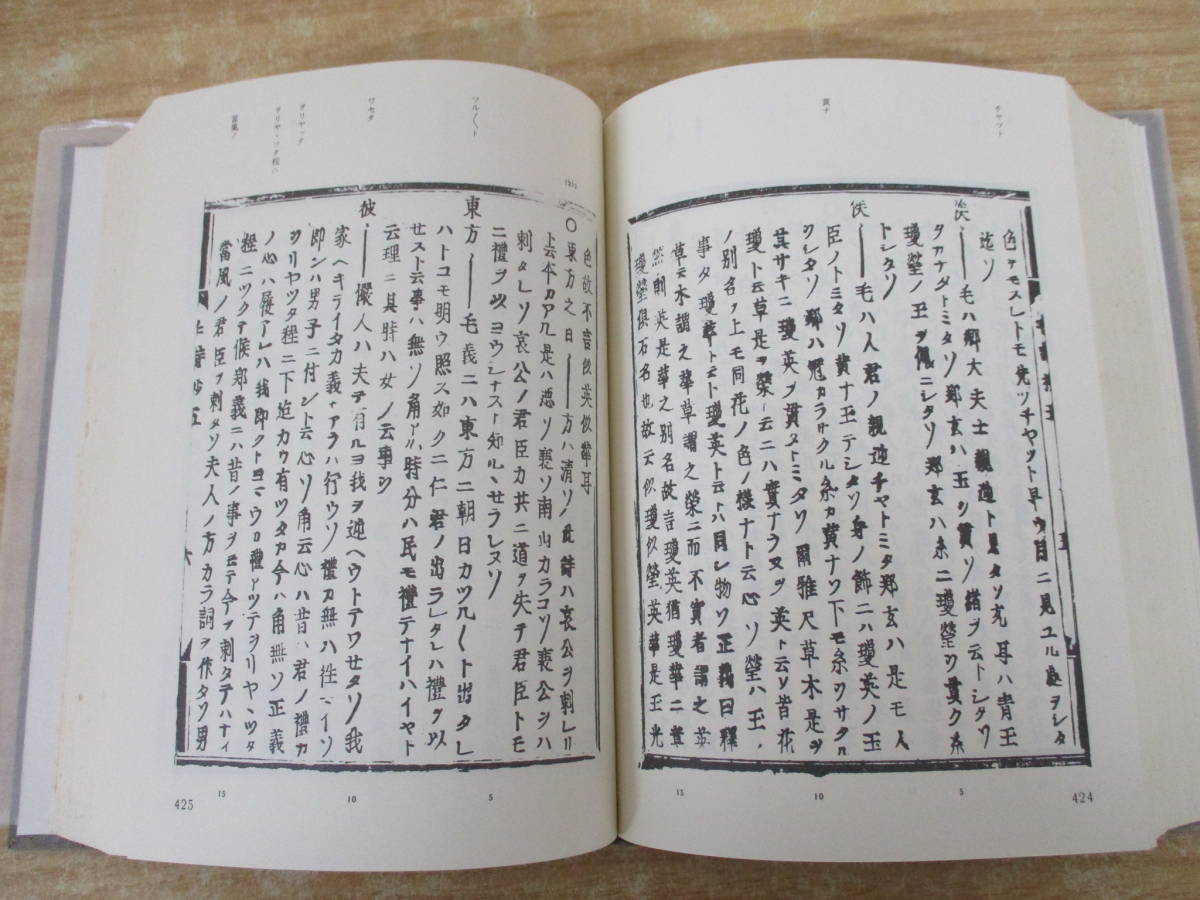 チヤツト
黄ナ
色ヲモスレトモ先ツチヤツト早ウ目ニ見ユル處ヲシタ
迄ソ
俟——毛ハ卿大夫士親迎ト見タソ充耳ハ青玉
タカナダトミタソ鄭玄ハ玉ヲ貫ソ緒ヲ云トシタソ
瓊瑩ノ玉ヲ佩ニシタソ鄭玄ハ糸ニ瓊瑩ヲ貫ク糸
トシタソ
俟——毛ハ人君ノ親迎チヤトミタ鄭玄ハ是モ人
臣ノトミタソ黄ナ玉テシタソ身ノ飾ニハ瓊英ノ玉
ヲシタソ鄭ハ冠カラサクル糸カ黄ナソ下モ糸ヲサクル
其サキニ瓊英ヲ貫タトミタソ爾雅尺草木是ヲ
瓊ト云草是ヲ榮ト云ニハ實ナラヌヲ英ト云ソ皆花
ノ別名ヲ上モ同花ノ色ノ様ナト云心ソ瑩ハ玉ノ
事タ瓊華ト云ト瓊英ト云トハ同シ物ソ正義曰釋
草云木謂之華草謂之榮而不實者謂之英
然則英是華之別名故言瓊英猶瓊華二章
瓊瑩俱石名也故云似瓊似瑩英華是玉光
5
10
15
424
ツル〱ト
ワセタ
ヲリヤツタ
ヲリヤツタ程ニ
當風ノ
色故不言似英似華耳
○東方之日——方ハ清ソ此詩ハ哀公ヲ刺レリ
ト云本カアル是ハ悪ソ襄ソ南山カラコソ襄公ヲハ
刺タレソ哀公ノ君臣カ共ニ道ヲ失テ君臣トモ
ニ禮ヲ以ヨウシナスヿ知ルヽせラレヌソ
東方——毛義ニハ東方ニ朝日カツル〱ト出タレ
ハトコモ明ウ照ス如クニ仁君ノ出ラレタレハ禮ヲ以
せスト云事ハ無ソ角アル時分ハ民モ禮テナイハイヤト
云理ニ其時ハ女ノ云事ソ
彼——人ハ夫テ有ルヨ我ヲ迎ヘウトテワせタソ我
家ヘキライタカ義ヽアラハ行ウソ禮カ無ハ往マイソ
即ンハ男子ニ付ント云心ソ角云心ハ昔ハ君ノ禮カ
ヲリヤツタ程ニ下迄カウ有ツタカ今ハ角無ソ正義
ノ心ハ履レハ我即クトヨマウソ禮アツテヲリヤツタ
程ニツクテ候鄭義ニハ昔ノ事ヲ云テ今ヲ刺タテハナイ
當風ノ君臣ヲ刺タソ夫人ノ方カラ詞ヲ作タソ男
5
10
15
425